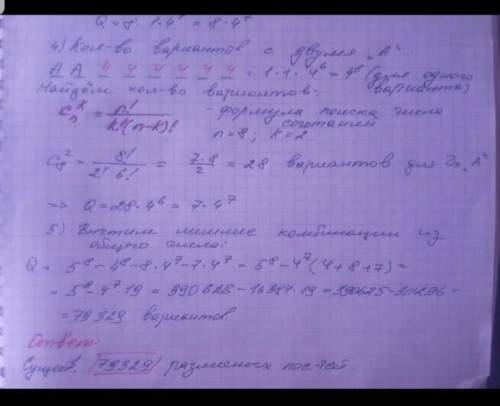 Q = 8 · 1 · 4⁷ = 8 · 4⁷
4) Кол-во вариантов с двумя "А":
А А 4 4 4 4 4 4 = 1·1·4⁶ = 4⁶ (для одного варианта)
Найдём кол-во вариантов:
Cₙᵏ = n! / k!(n-k)! - формула поиска числа сочетаний
n=8; k=2
C₈² = 8! / 2! 6! = 7·8 / 2 = 28 вариантов для 2х "А"
=> Q = 28·4⁶ = 7·4⁷
5) Вычтем лишние комбинации из
общего числа:
Q = 5⁸ - 4⁸ - 8·4⁷ - 7·4⁷ = 5⁸ - 4⁷(4+8+7) =
= 5⁸ - 4⁷·19 = 390625 - 16384·19 = 390625 - 311296 =
= 79329 вариантов.
Ответ:
Существ. 79329 различных